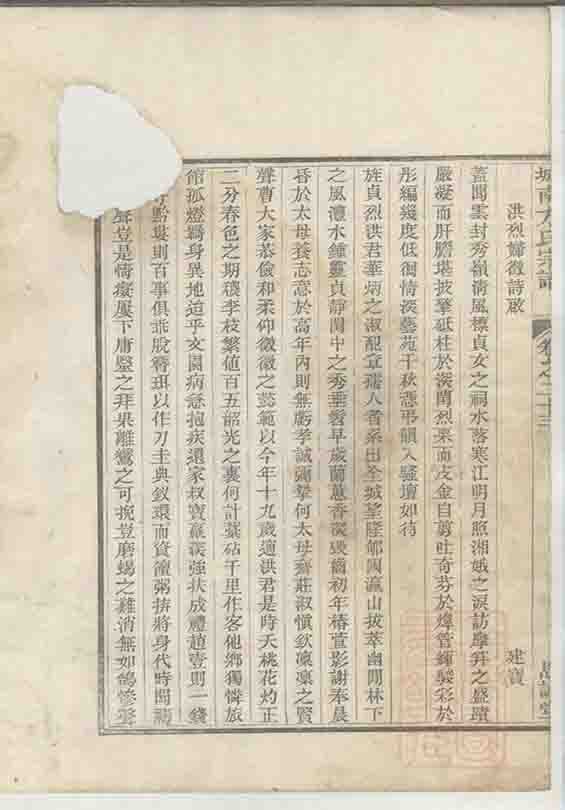 城南方氏宗譜 卷之二十三
洪烈婦徵詩啟 建寶
蓋聞雲封秀嶺清風標貞女之祠水落寒江明月照湘娥之淚訪摩笄之盛蹟
嚴凝而肝膽堪披擎砥柱於深閨烈栗而皮金自剪吐奇芬於煒管輝駿彩於
彤編幾度低徊情深藝苑千秋憑弔韻入騷壇如待
旌貞烈洪君華炳之淑配章孺人者系出全城望隆郇國瀛山拔萃幽閒林下
之風澧水鍾靈貞靜閨中之秀垂髫早歲蘭蕙香深毀齒初年椿萱影謝奉晨
昏於太母養志意於高年內則無虧孝誠彌摯何太母齊莊淑慎欽凜凜之賢
聲曹大家恭儉和柔仰徽徽之懿範以今年十九歲適洪君是時夭桃花灼正
二分春色之期穠李枝繁值百五韶光之裏何計藁砧千里作客他鄉獨憐旅
館孤燈羈身異地迨乎文園病急抱疾還家叔寶羸深強扶成禮趙壹則一錢
黔婁則百事俱乖脫簪珥以作刀圭典釵環而資饘粥拚將身代時聞禱
聲豈是情癡屢下庸醫之拜果離鸞之可挽豈磨蝎之難消無如鴿慘